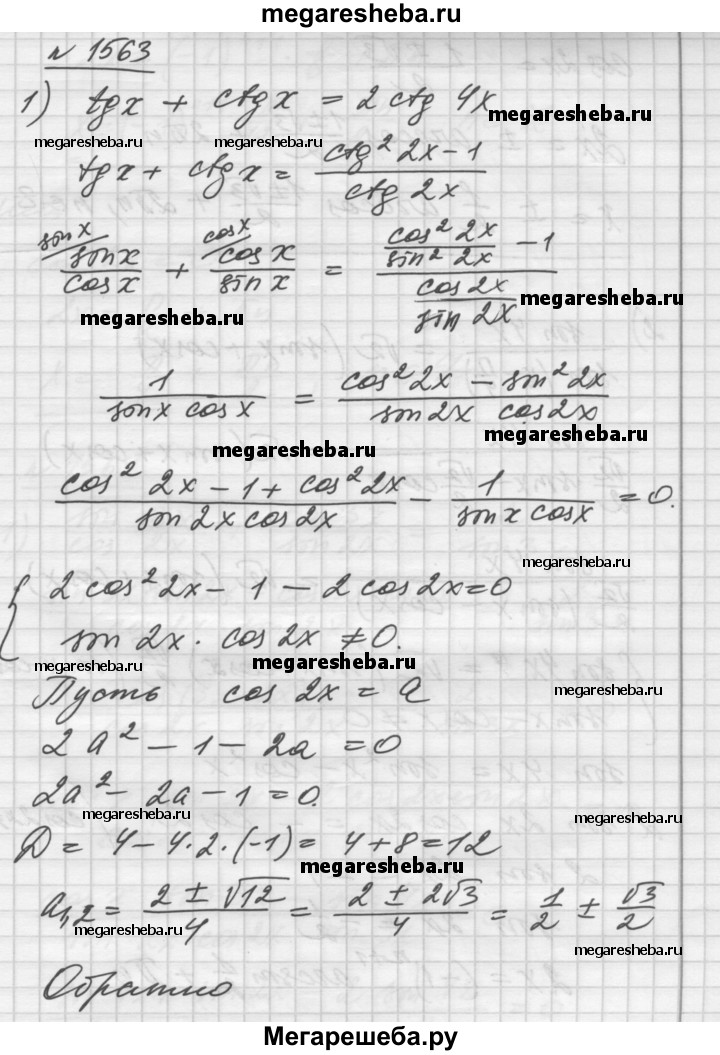 megaresheba.ru
№ 1563
1) tgx + ctgx = 2 ctg 4x
megaresheba.ru
megaresheba.ru megaresheba.ru
tgx + ctgx = (ctg² 2x - 1)/(ctg 2x)
sinx/ sinx/cosx + cosx/ cosx/sinx = (cos² 2x/sin² 2x - 1)/(cos 2x/sin 2x)
megaresheba.ru
megaresheba.ru
1/(sinx cosx) = (cos² 2x - sin² 2x)/(sin 2x cos 2x)
megaresheba.ru
megaresheba.ru
(cos² 2x - 1 + cos² 2x)/(sin 2x cos 2x) - 1/(sinx cosx) = 0.
megaresheba.ru
{ 2 cos² 2x - 1 - 2 cos 2x = 0
sin 2x · cos 2x ≠ 0.
megaresheba.ru megaresheba.ru
Пусть cos 2x = a
megaresheba.ru
2a² - 1 - 2a = 0
2a² - 2a - 1 = 0.
megaresheba.ru megaresheba.ru
D = 4 - 4·2·(-1) = 4 + 8 = 12
megaresheba.ru
a₁,₂ = (2 ± √12)/4 = (2 ± 2√3)/4 = 1/2 ± √3/2
megaresheba.ru megaresheba.ru
Обратно
Мегарешеба.ру